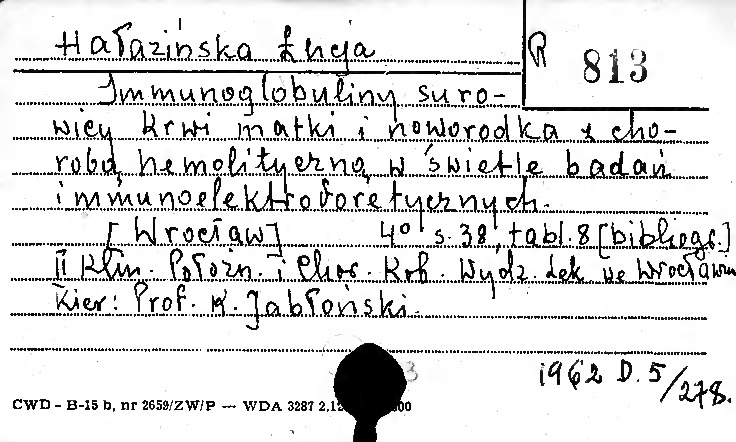 Hałazińska Łucja
R 813
Immunoglobuliny suro-
wicy krwi matki i noworodka z cho-
robą hemolityczną w świetle badań
immunoelektroforetycznych.
[Wrocław] 4° s. 38, tabl. 8 [bibliogr.]
II Klin. Położn. i Chor. Kob. Wydz. Lek we Wrocławiu
Kier: Prof. K. Jabłoński.
1962 D. 5/278.
CWD - B-15 b, nr 2659/ZW/P — WDA 3287 2,12